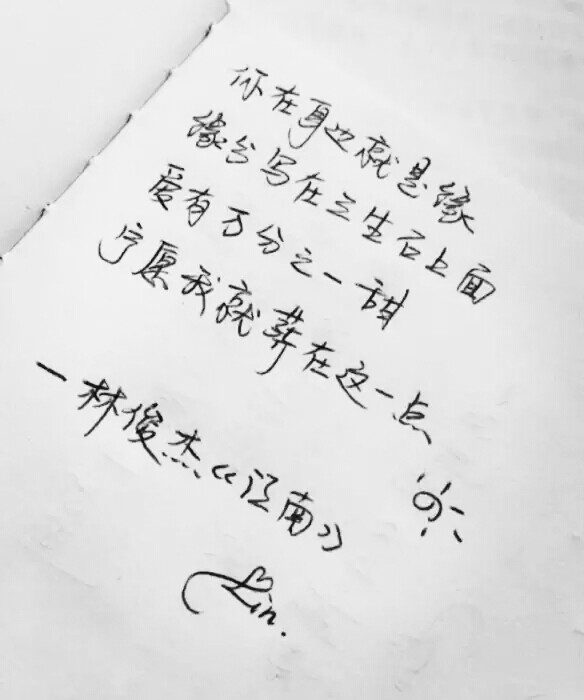 你在身边就是缘
缘分写在三生石上面
爱有万分之一甜
宁愿我就葬在这一点
一林俊杰《江南》
Lin.